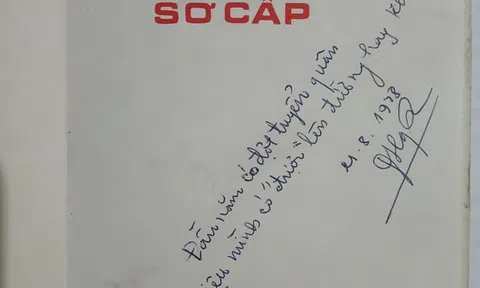 SƠ CẤP
Đầu năm có đợt tuyển quân
liệu mình có được lên đường hay
21.8.1978